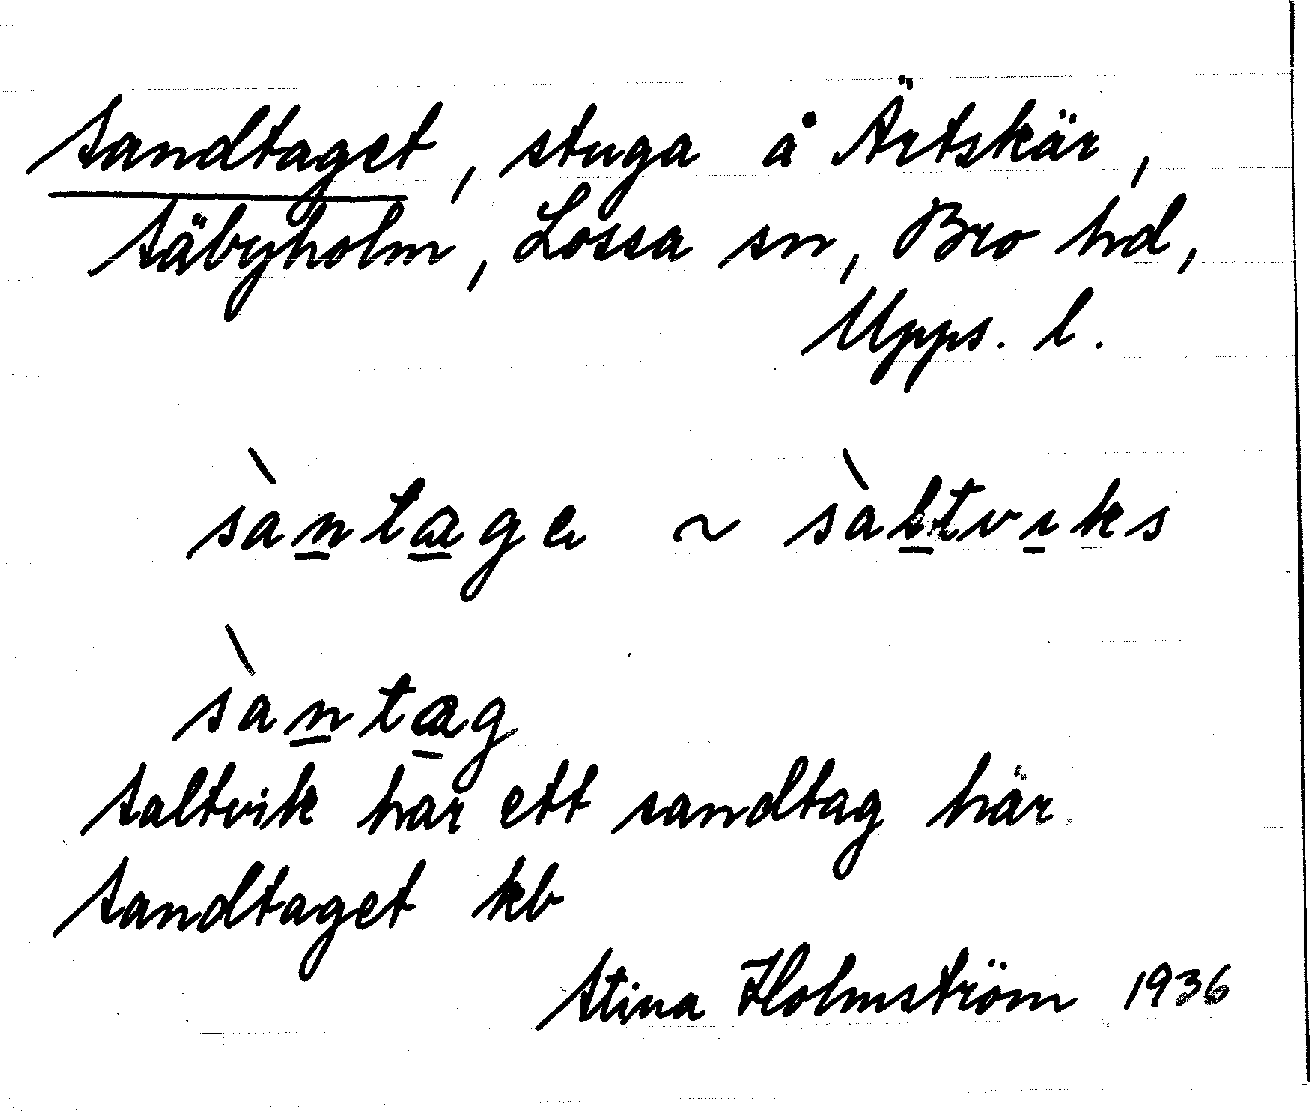 Sandtaget, stuga å Ärtskär,
Säbyholm, Lossa sn, Bro hd,
Upps. l.
sàntage ~ sàltvıks
sàntag
Saltvik har ett sandtag här
Sandtaget kb
Stina Holmström 1936